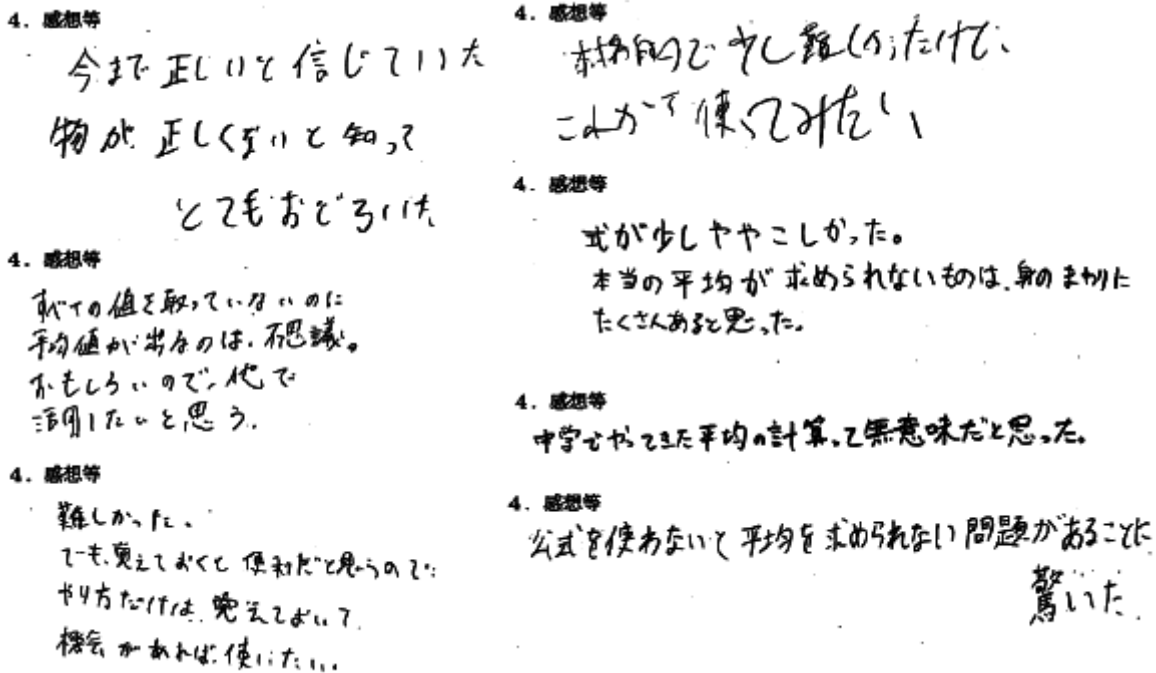 4．感想等
今まで正しいと信じていた
物が正しくないと知って
とてもおどろいた
4．感想等
すべての値を取っていないのに
平均値が出るのは、不思議。
おもしろいので、他で
活用したいと思う。
4．感想等
難しかった。
でも、覚えておくと便利だと思うので
やり方だけは覚えておいて
機会があれば、使いたい。
4．感想等
本格的で少し難しかったけど、
これから使ってみたい
4．感想等
式が少しややこしかった。
本当の平均が求められないものは、身のまわりに
たくさんあると思った。
4．感想等
中学でやってきた平均の計算って無意味だと思った。
4．感想等
公式を使わないと平均を求められない問題があることに
驚いた